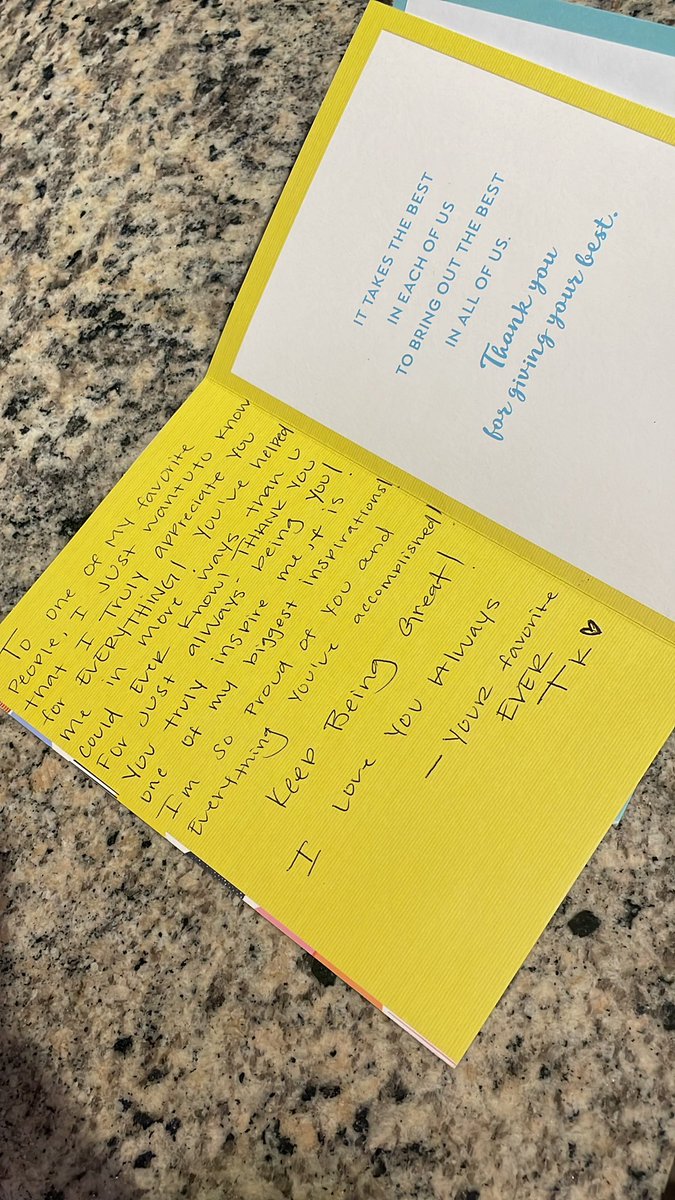 IT TAKES THE BEST
IN EACH OF US
TO BRING OUT THE BEST
IN ALL OF US.
Thank you
for giving your best.
To one of my favorite
People, I Just want u to know
that I Truly appreciate you
for EVERYTHING! You've helped
me in more ways than u
could Ever know! THANK YOU
For Just always being you!
You truly inspire me, is
one of my biggest inspirations!
I'm so Proud of You and
Everything you've accomplished!
Keep Being Great!
I Love You Always
- Your favorite
EVER
TK ♥